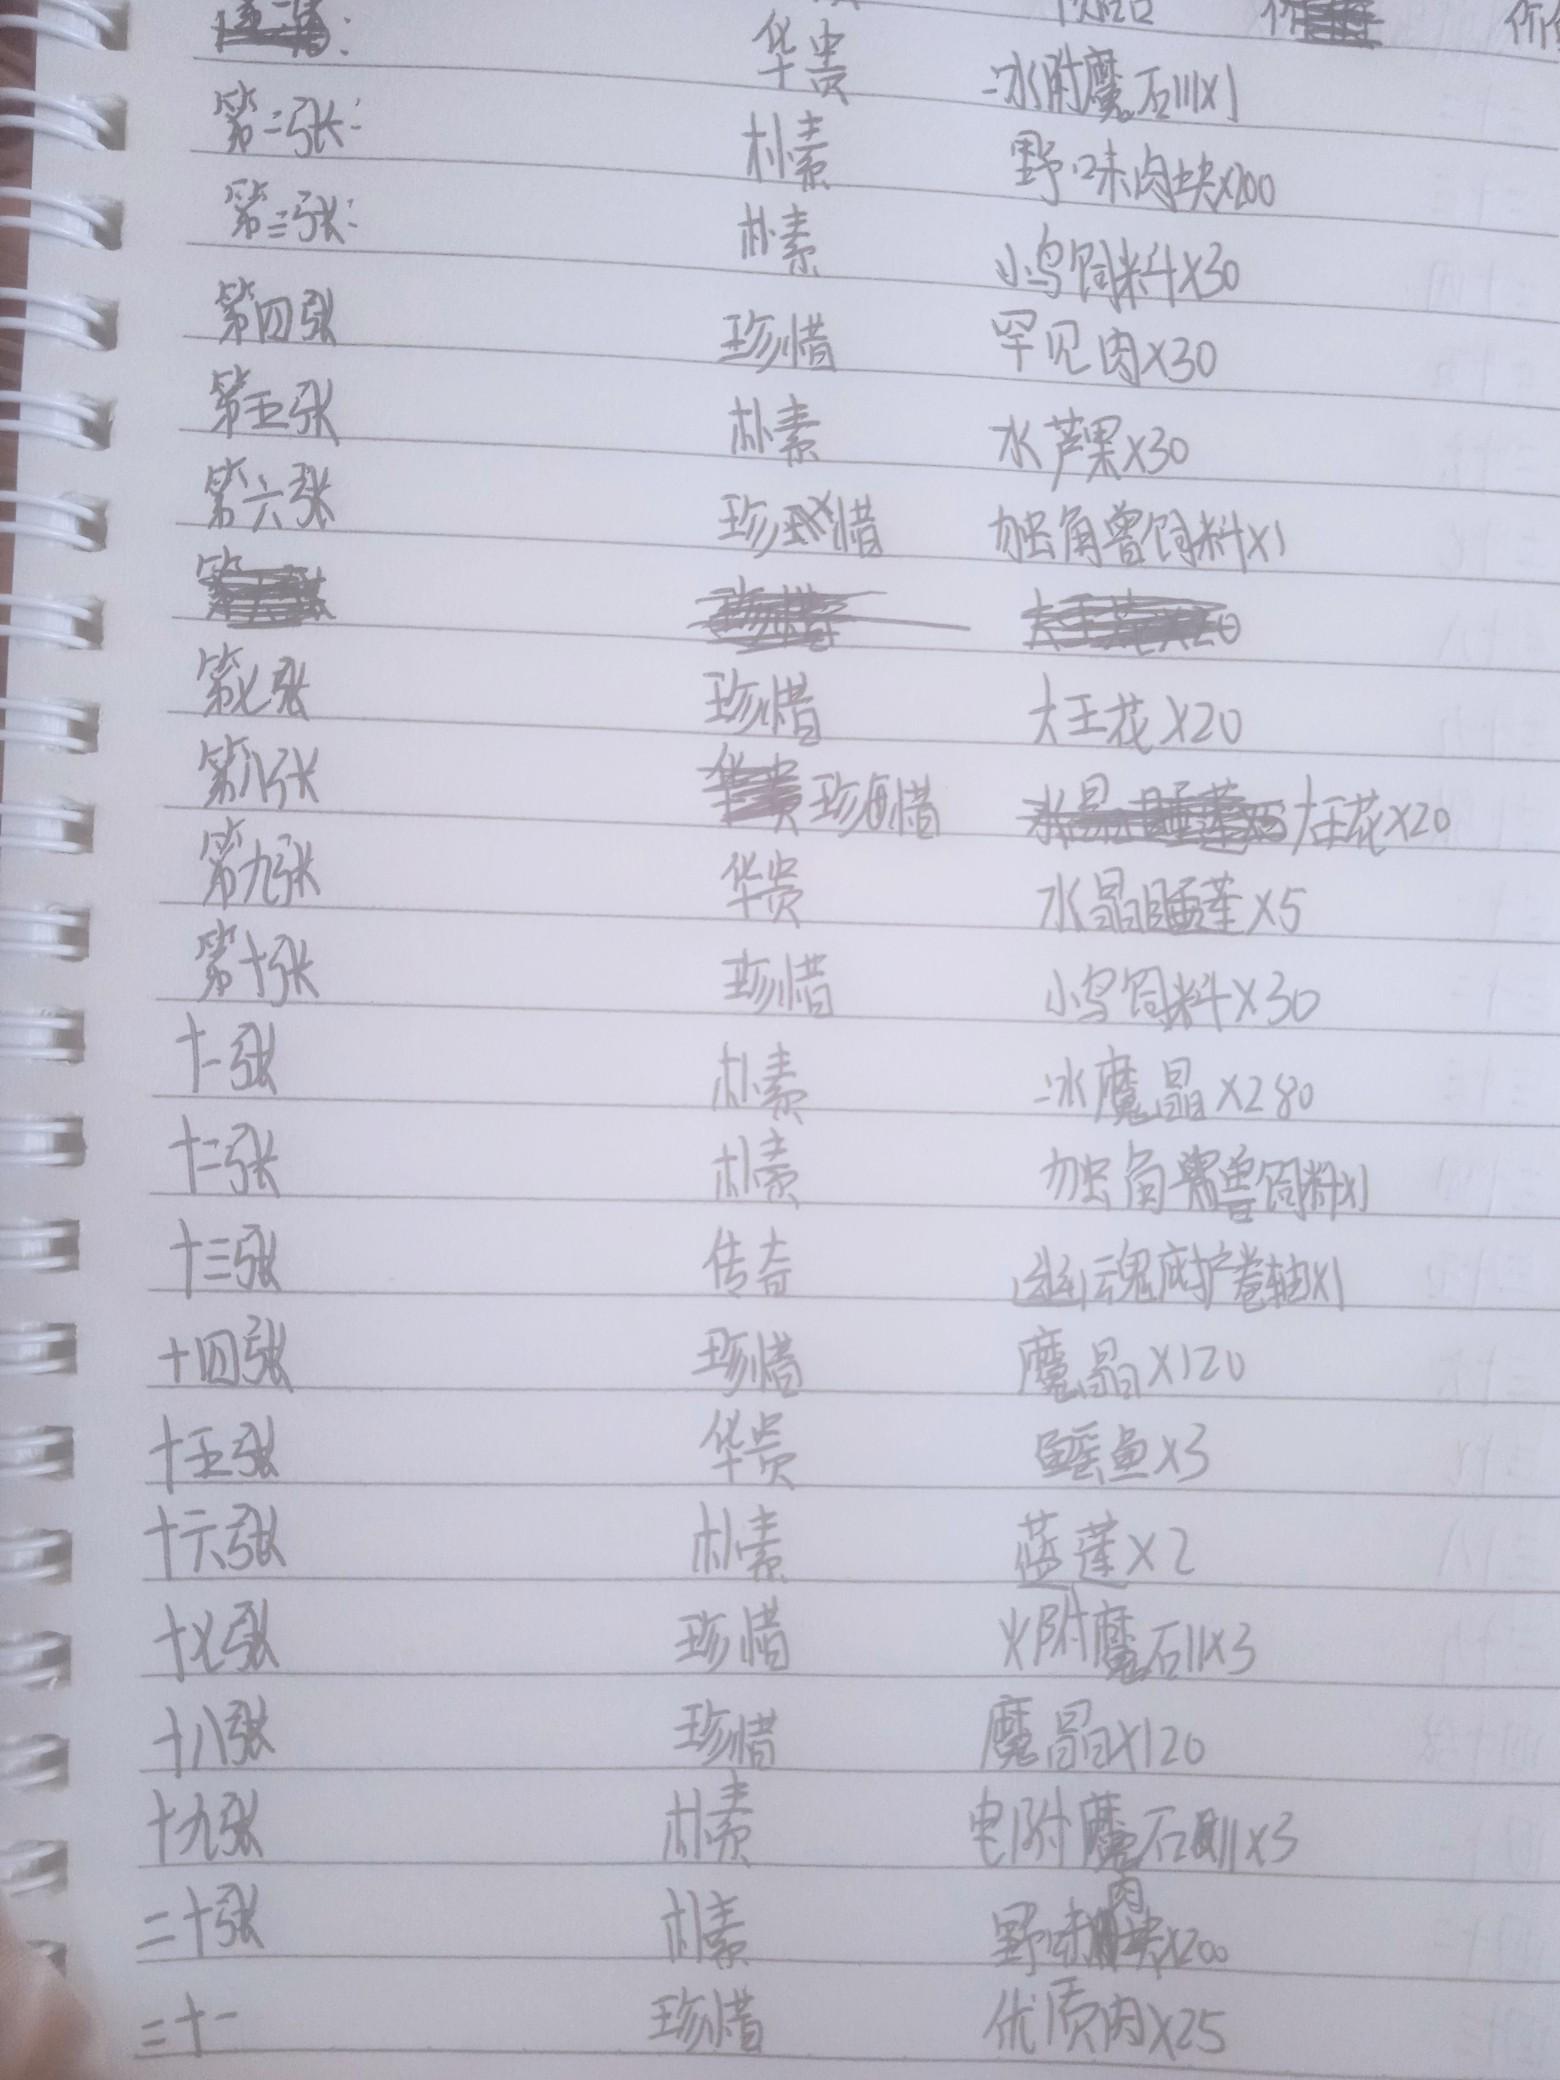 华贵 冰附魔石III x1
第二张: 朴素 野味肉块x200
第三张: 朴素 小鸟饲料x30
第四张 珍惜 罕见肉x30
第五张 朴素 水芦果x30
第六张 珍惜 独角兽饲料x1
第七张 珍惜 大王花x20
第八张 珍惜 大王花x20
第九张 华贵 水晶睡莲x5
第十张 珍惜 小鸟饲料x30
十一张 朴素 冰魔晶x280
十二张 朴素 独角兽饲料x1
十三张 传奇 幽魂庇护卷轴x1
十四张 珍惜 魔晶x120
十五张 华贵 鳐鱼x3
十六张 朴素 蓝莲x2
十七张 珍惜 火附魔石IIx3
十八张 珍惜 魔晶x120
十九张 朴素 电附魔石IIx3
二十张 朴素 野味肉块x200
二十一 珍惜 优质肉x25